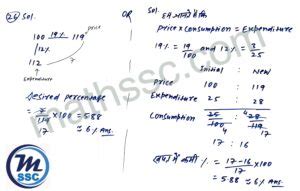 26 Sol.
100 19% 119
price
12%
112
Expenditure
Desired percentage
= 7/119 × 100 = 5.88
17
≈ 6% Ans.
OR
Sol. हम जानते है कि
Price × Consumption = Expenditure
19% = 19/100 and 12% = 3/25
Initial : New
Price 100 : 119
Expenditure 25 : 28
Consumption 25/100 : 28/119
17
17 : 16
खपत में कमी % = 17-16/17 × 100
= 5.88 ≈ 6% Ans.
mathssc.com
M
SSC